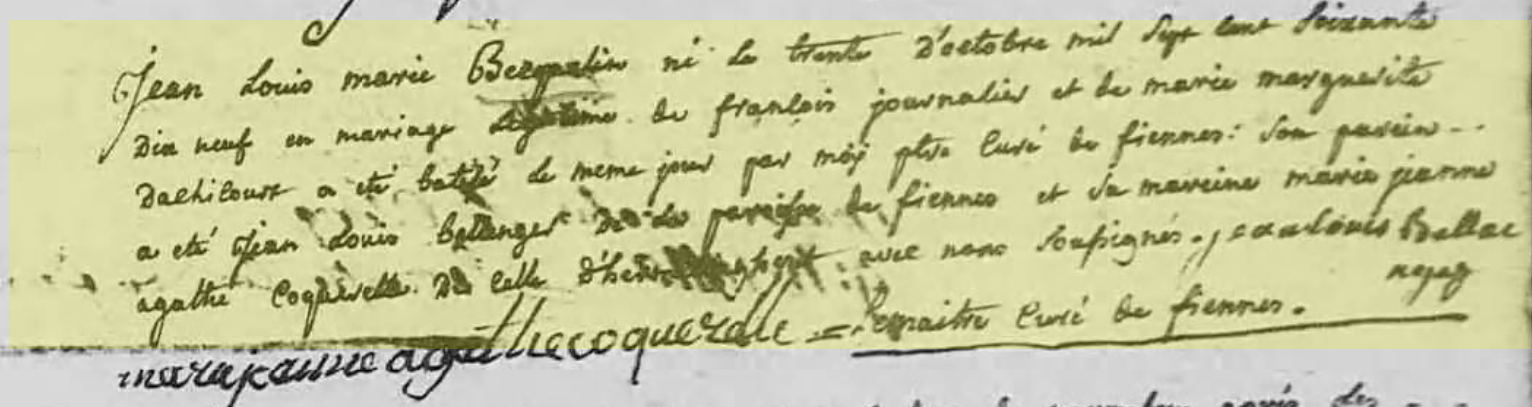 Jean Louis marie Becquelin né le trente D'octobre mil Sept cent Soixante
Dix neuf en mariage légitime de françois journalier et de marie marguerite
Dachicourt a eté batisé le meme jour par moy ptre Curé de fiennes: Son parein
a eté Jean Louis Bellanger De La paroisse de fiennes et Sa mareine marie jeanne
agathe Coquerelle De Celle avec nous Soussignés. jean Louis Bellac
Lemaitre Curé de fiennes.
marajeanne agathe coquerelle